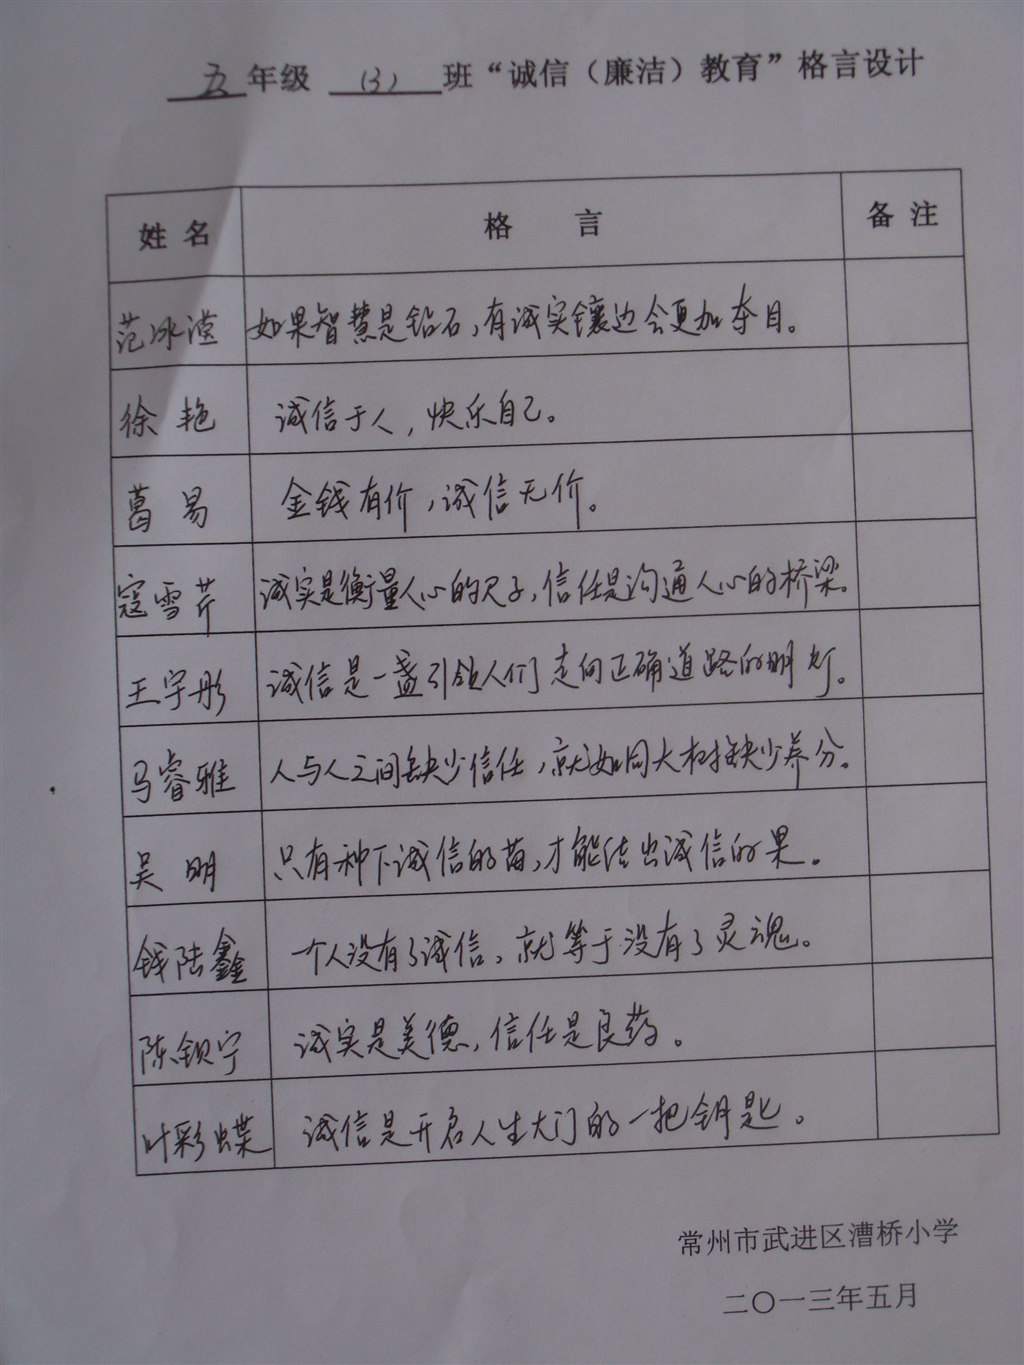 五年级 (3) 班“诚信（廉洁）教育”格言设计
姓名 格言 备注
范冰滢 如果智慧是钻石，有诚实镶边会更加夺目。
徐艳 诚信于人，快乐自己。
葛易 金钱有价，诚信无价。
寇雪芹 诚实是衡量人心的尺子，信任是沟通人心的桥梁。
王宇彤 诚信是一盏引领人们走向正确道路的明灯。
马睿雅 人与人之间缺少信任，就如同大树缺少养分。
吴明 只有种下诚信的苗，才能结出诚信的果。
钱陆鑫 一个人没有了诚信，就等于没有了灵魂。
陈钡宁 诚实是美德，信任是良药。
叶彩蝶 诚信是开启人生大门的一把钥匙。
常州市武进区漕桥小学
二〇一三年五月